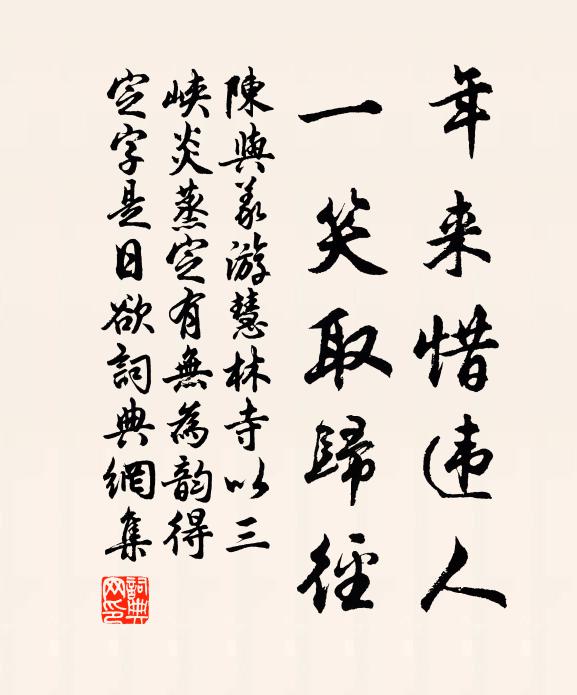 年来惜违人
一笑取歸徑
陳與義游慧林寺以三
峽炎蒸定有無為韵得
定字是日欲詞典網集
詞典网印